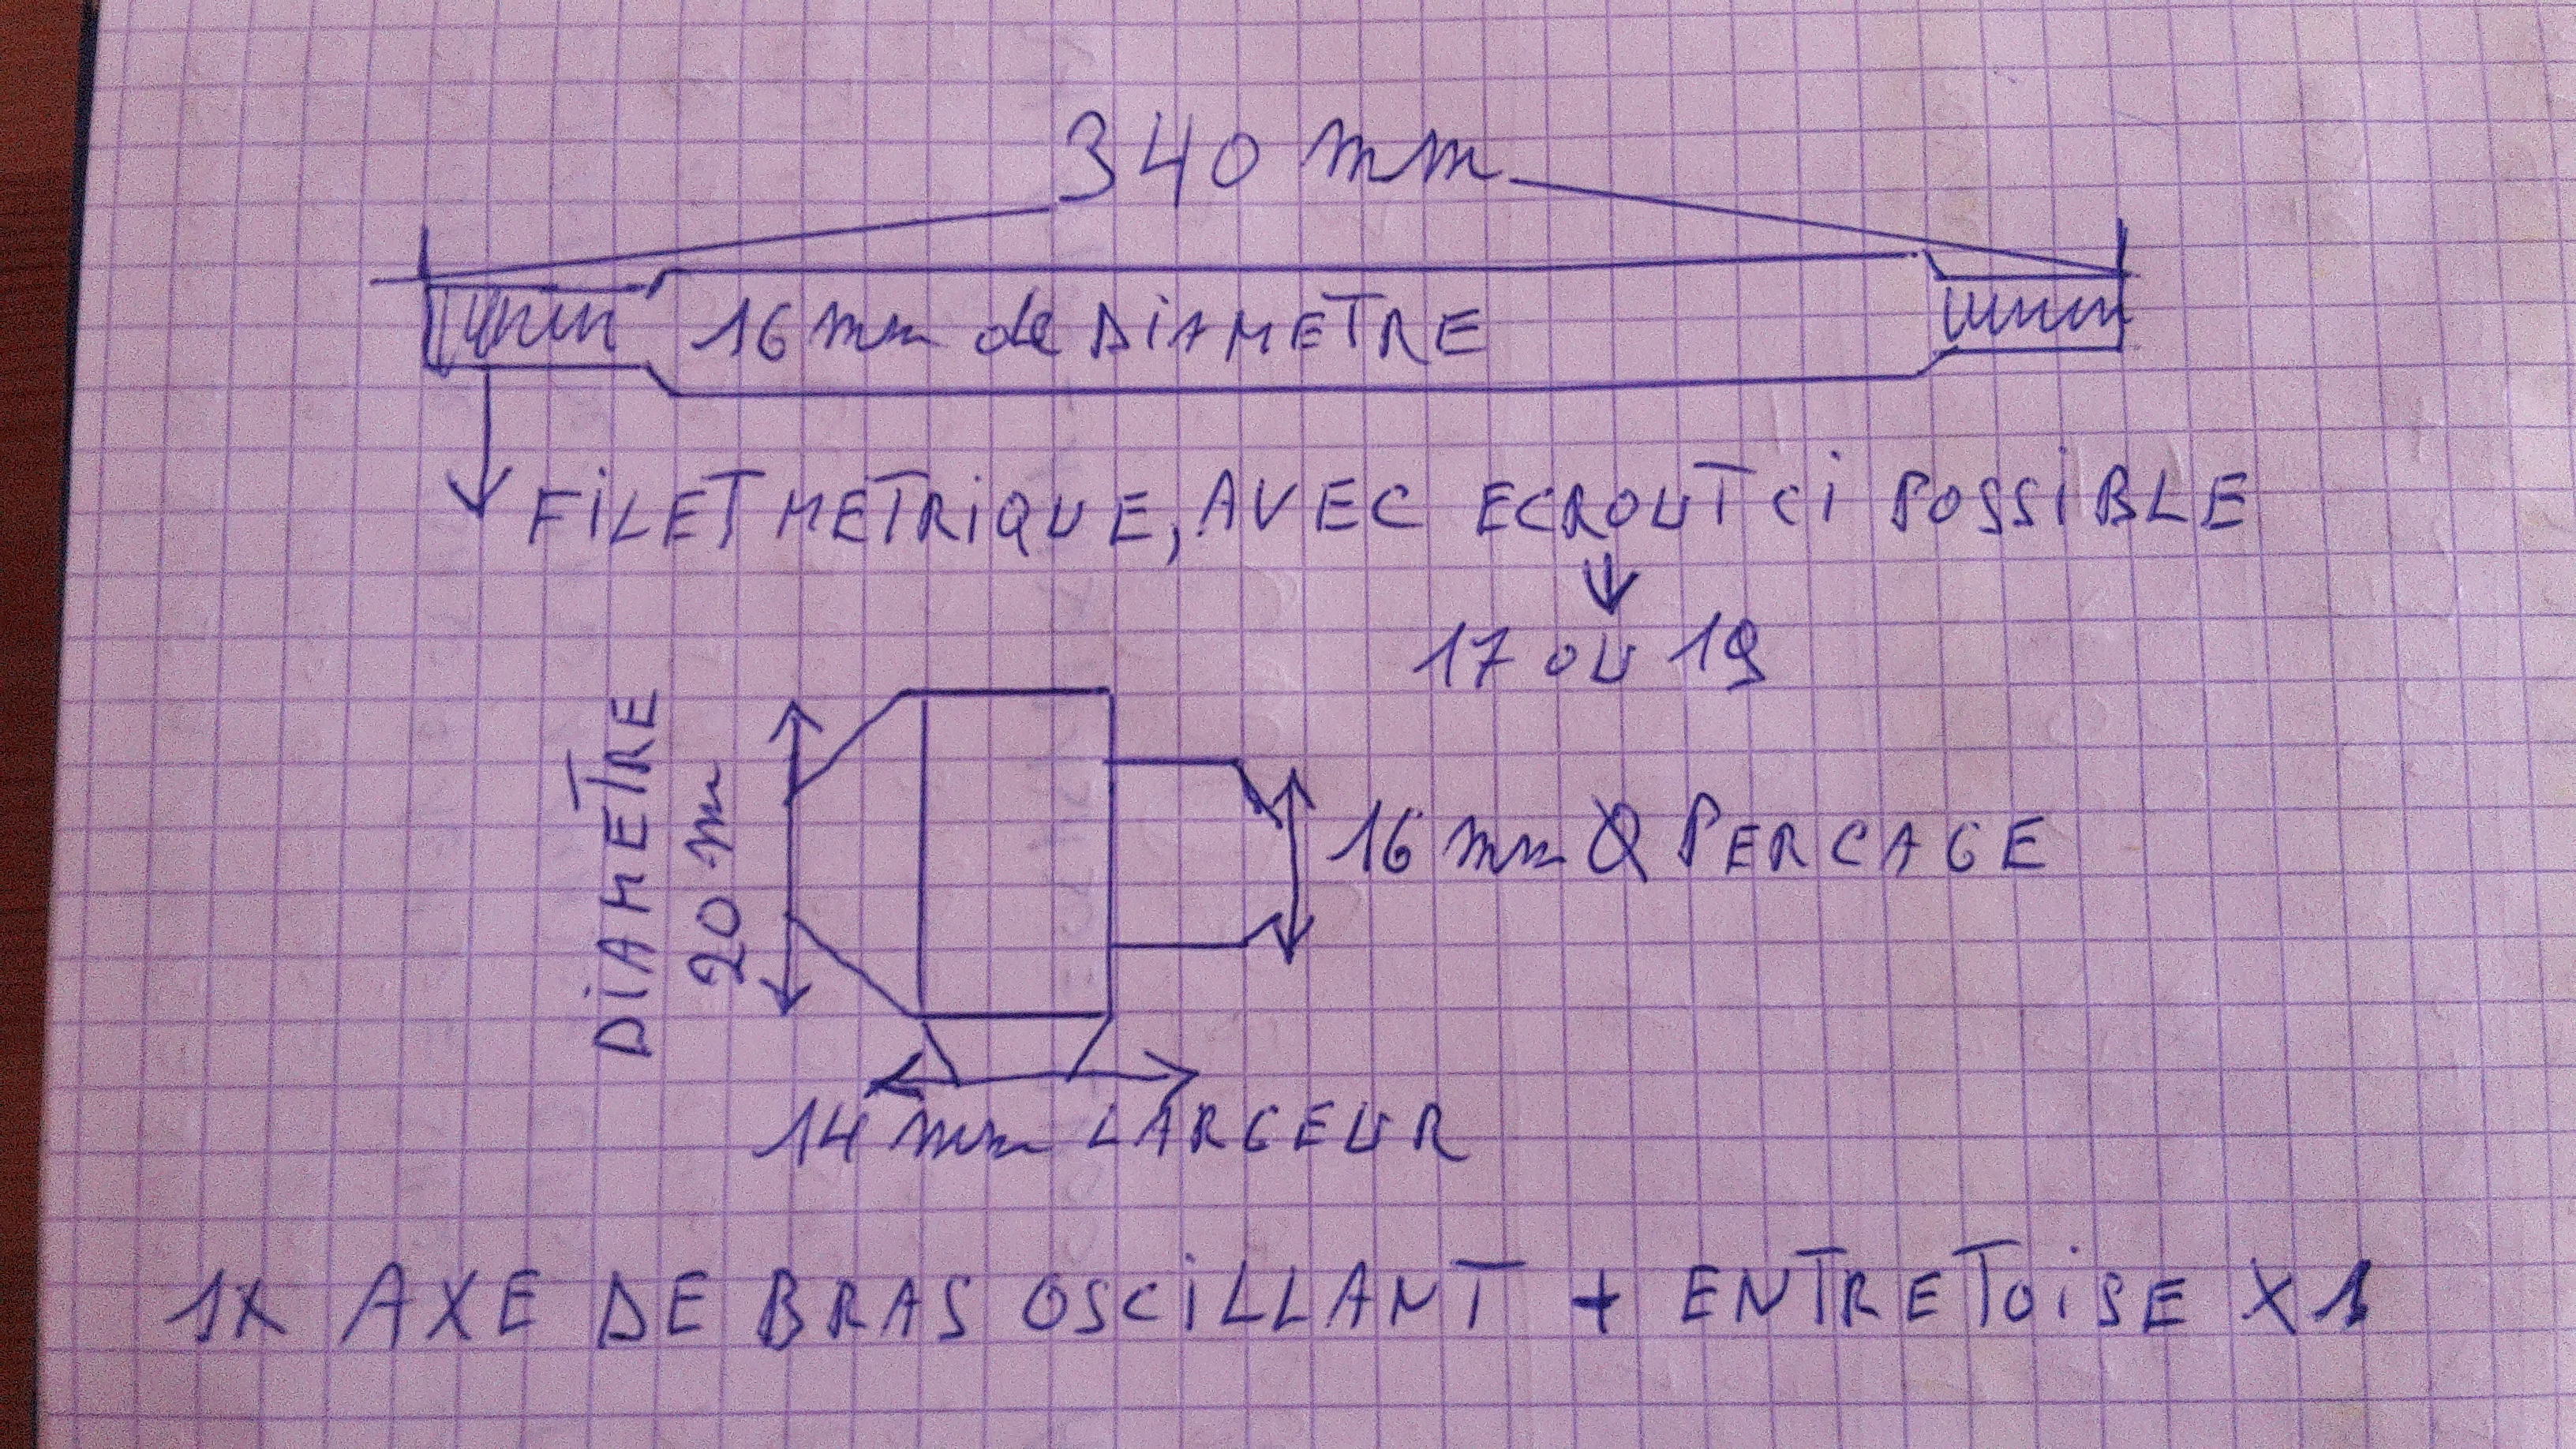 340 mm
16 mm de DIAMETRE
FILET METRIQUE, AVEC ECROUT CI POSSIBLE
17 ou 19
DIAMETRE
20 m
16 mm Ø PERCAGE
14 mm LARGEUR
1X AXE DE BRAS OSCILLANT + ENTRETOISE X 1